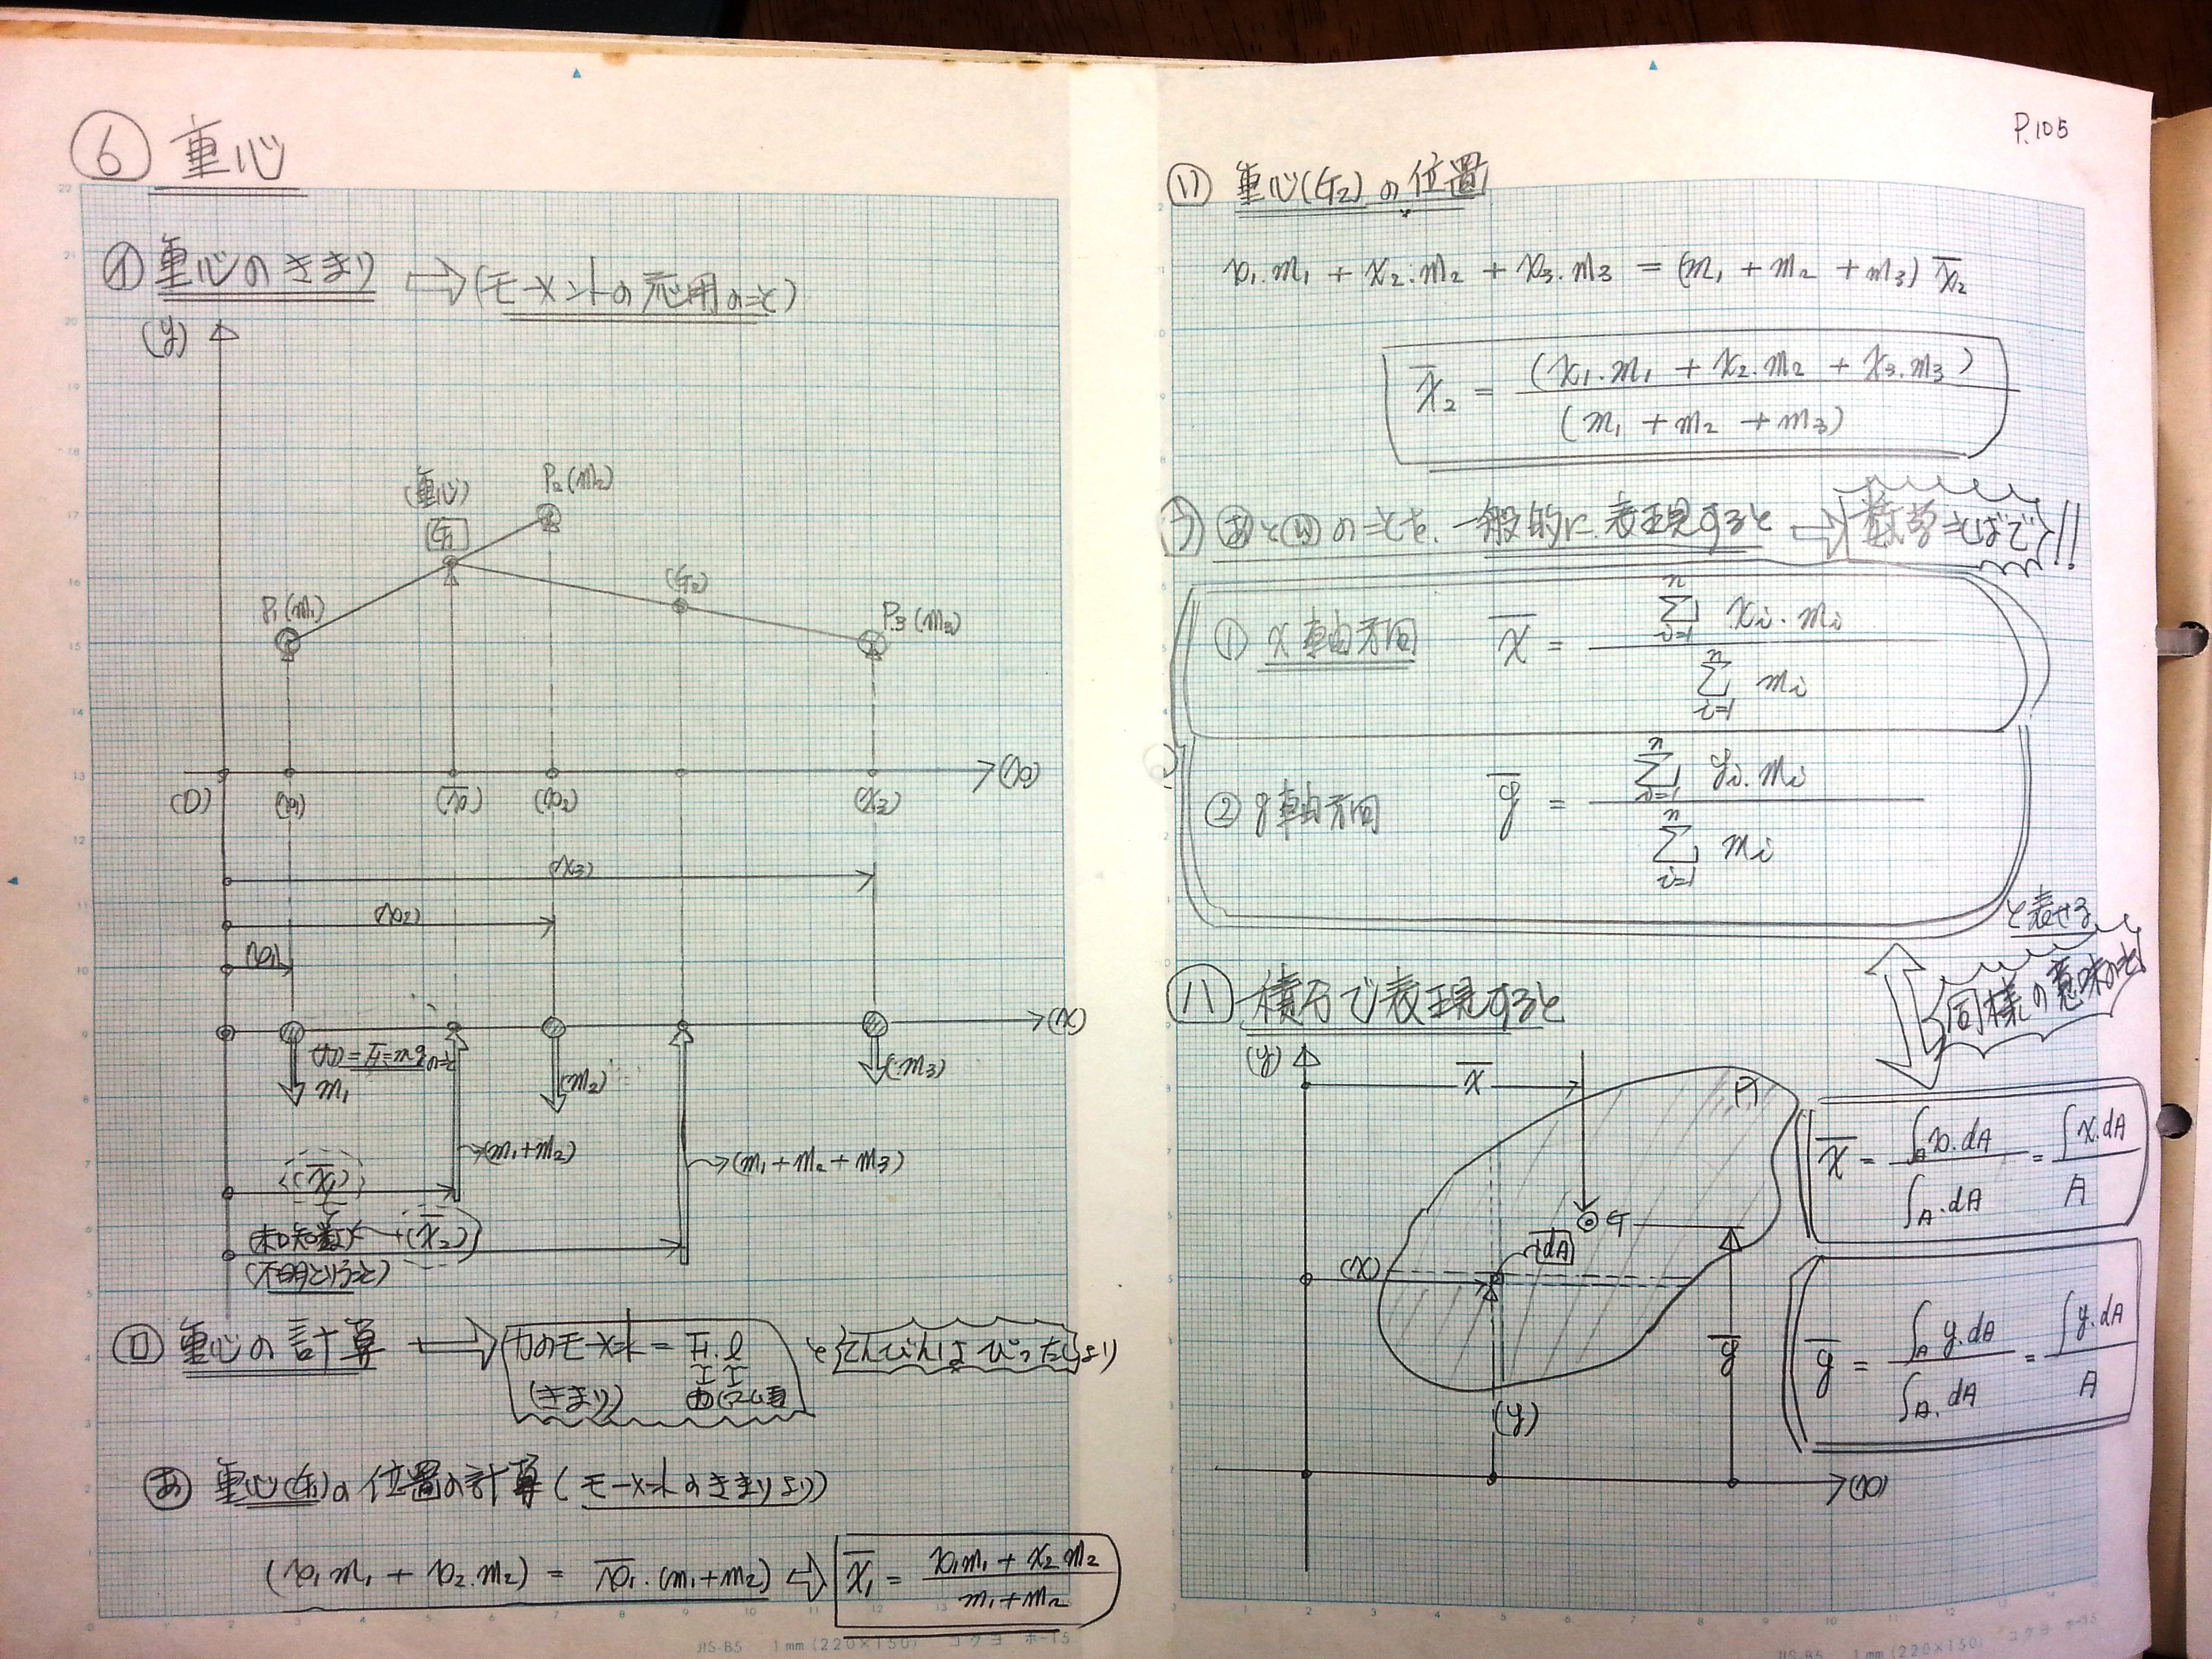 ⑥ 重心
㋑ 重心のきまり ⇨ (モーメントの応用のこと)
(y)
(重心)
P₂(m₂)
G₁
P₁(m₁)
(G₂)
P₃(m₃)
(x)
(0) (x₁) (x̄₁) (x₂) (x₃)
(x₃)
(x₂)
(x₁)
(x)
m₁
(m₂)
(m₃)
(m₁+m₂)
(m₁+m₂+m₃)
(x̄₁)
(未知数) ← (x̄₂)
(不明ということ)
㋺ 重心の計算 ⇨ 力のモーメント = F.l とてんびんはぴったしより
(きまり)
㋐ 重心(G₁)の位置の計算 (モーメントのきまりより)
(x₁m₁ + x₂.m₂) = x̄₁.(m₁+m₂) ⇨ x̄₁ = (x₁m₁ + x₂m₂) / (m₁+m₂)
JIS-B5 1mm (220×150) コクヨ ホ-15
P.105
㋑ 重心(G₂)の位置
x₁.m₁ + x₂.m₂ + x₃.m₃ = (m₁ + m₂ + m₃) x̄₂
x̄₂ = (x₁.m₁ + x₂.m₂ + x₃.m₃) / (m₁ + m₂ + m₃)
あといのことを、一般的に表現すると ⇨ 数学ことばで!!
① x 軸方向 x̄ = Σ(i=1→n) xi.mi / Σ(i=1→n) mi
② y 軸方向 ȳ = Σ(i=1→n) yi.mi / Σ(i=1→n) mi
と表せる
同様の意味のこと
㋩ 積分で表現すると
(y)
x̄
A
G
dA
(x)
ȳ
(y)
(x)
x̄ = ∫A x.dA / ∫A.dA = ∫x.dA / A
ȳ = ∫A y.dA / ∫A.dA = ∫y.dA / A
JIS-B5 1mm (220×150) コクヨ ホ-15